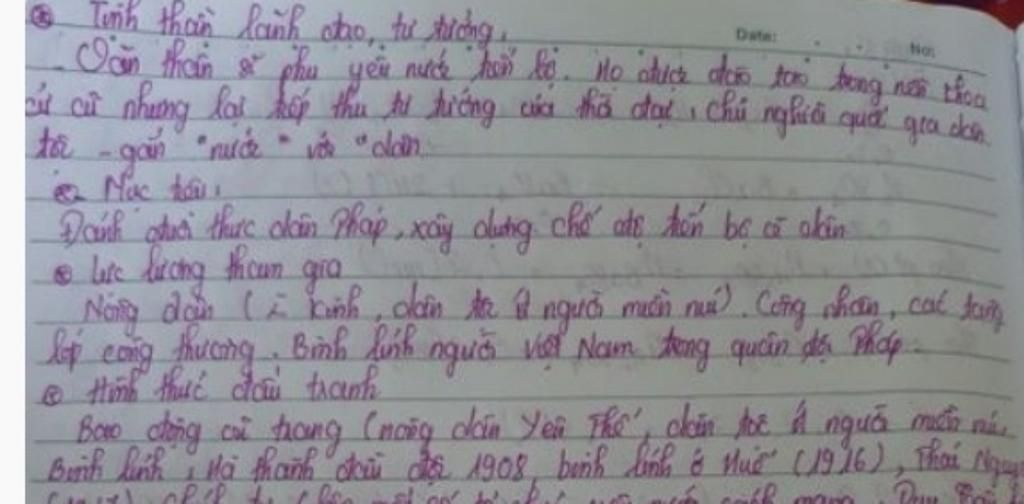 Tinh thần lãnh đạo, tư tưởng.
Date: No:
- Văn thân sĩ phu yêu nước tiến bộ. Họ được đào tạo trong nền khoa
cử cũ nhưng lại tiếp thu tư tưởng của thời đại, chủ nghĩa quốc gia dân
tộc - gắn "nước" với "dân
Mục tiêu.
Đánh đuổi thực dân Pháp, xây dựng chế độ tiến bộ có dân
Lực lượng tham gia
Nông dân ( Kinh, dân tộc ít người miền núi). Công nhân, các tầng
lớp công thương. Binh lính người Việt Nam trong quân đội Pháp.
Hình thức đấu tranh
Bạo động vũ trang (nông dân Yên Thế, dân tộc ít người miền núi,
Binh lính, Hà thành đầu độc 1908, binh lính ở Huế (1916), Thái Nguy